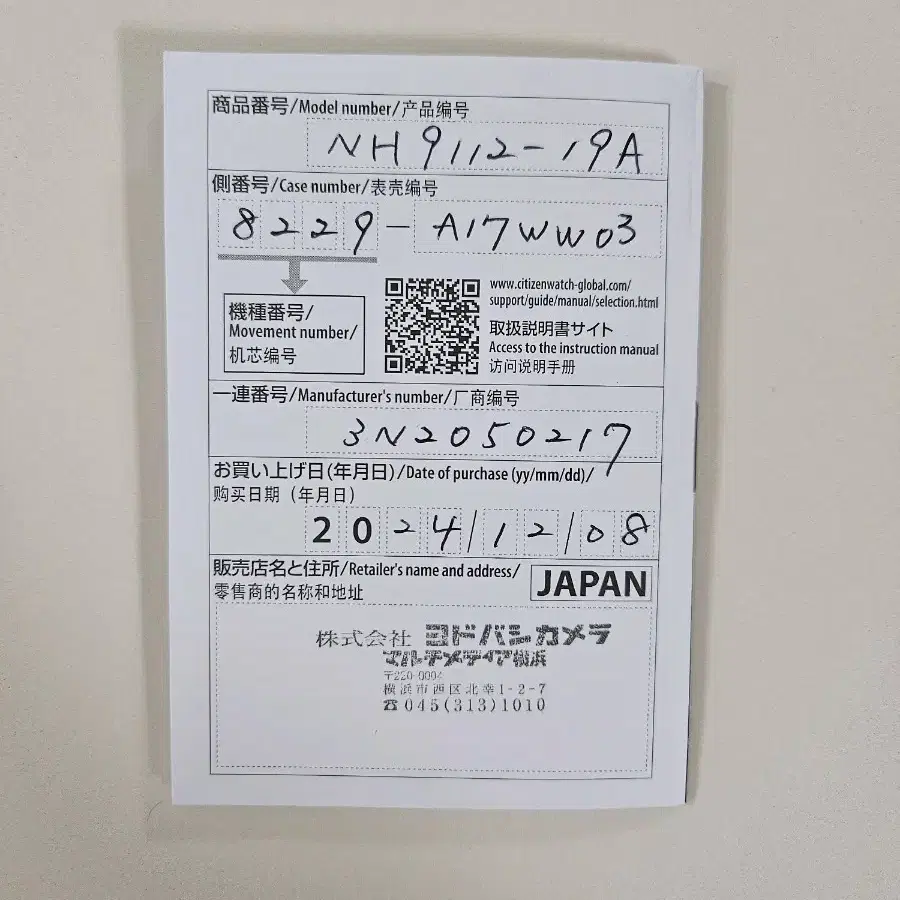 商品番号/Model number/产品编号
NH9112-19A
側番号/Case number/表壳编号
8229-A17WW03
機種番号/
Movement number/
机芯编号
www.citizenwatch-global.com/
support/guide/manual/selection.html
取扱説明書サイト
Access to the instruction manual
访问说明手册
一連番号/Manufacturer's number/厂商编号
3N2050217
お買い上げ日(年月日)/Date of purchase (yy/mm/dd)/
购买日期（年月日）
2024/12/08
販売店名と住所/Retailer's name and address/
零售商的名称和地址
JAPAN
株式会社 ヨドバシカメラ
マルチメディア横浜
〒220-0004
横浜市西区北幸1-2-7
☎045(313)1010